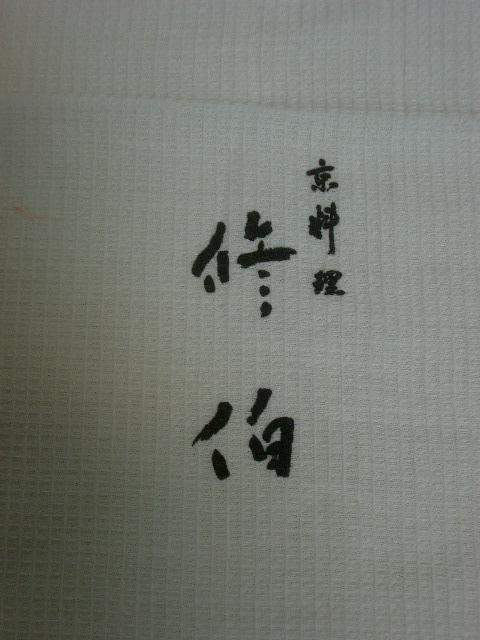 京料理
修伯